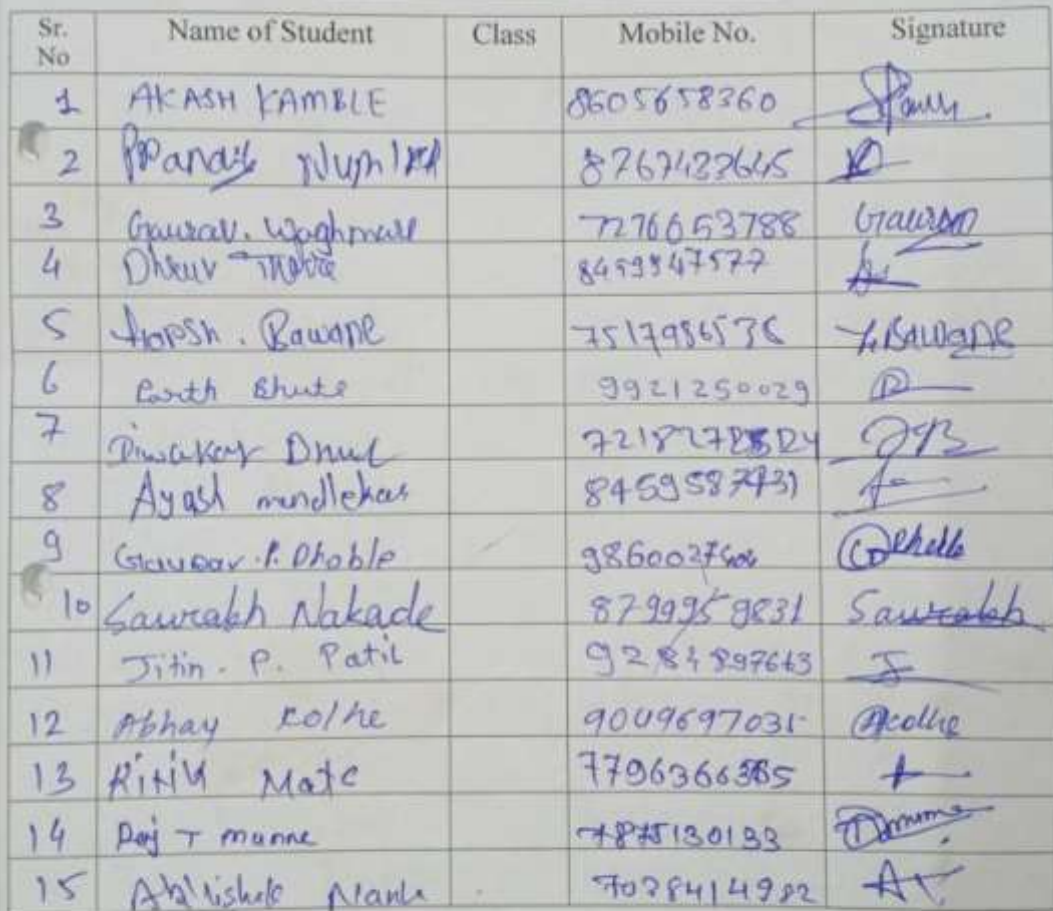 Sr. No Name of Student Class Mobile No. Signature
1 AKASH KAMBLE 8605658360
2 8767433645
3 Gaurav. Waghmare 7276653788 Gaurav
4 Dhruv 8459547577
5 Bawane 7517986536 Y. BAWANE
6 Parth Bhute 9921250029
7 Diwakar
8 Ayash mendlekar 8459587431
9 Gaurav. P. Dhoble
10 Saurabh Nakade 8799959831 Saurabh
11 Jitin. P. Patil 9284897663 J
12 Abhay Kolhe 9049697035 Akolhe
13 Ritik Mate 7796366365
14 Raj T munne 7875130133
15 Abhishek 7038414982